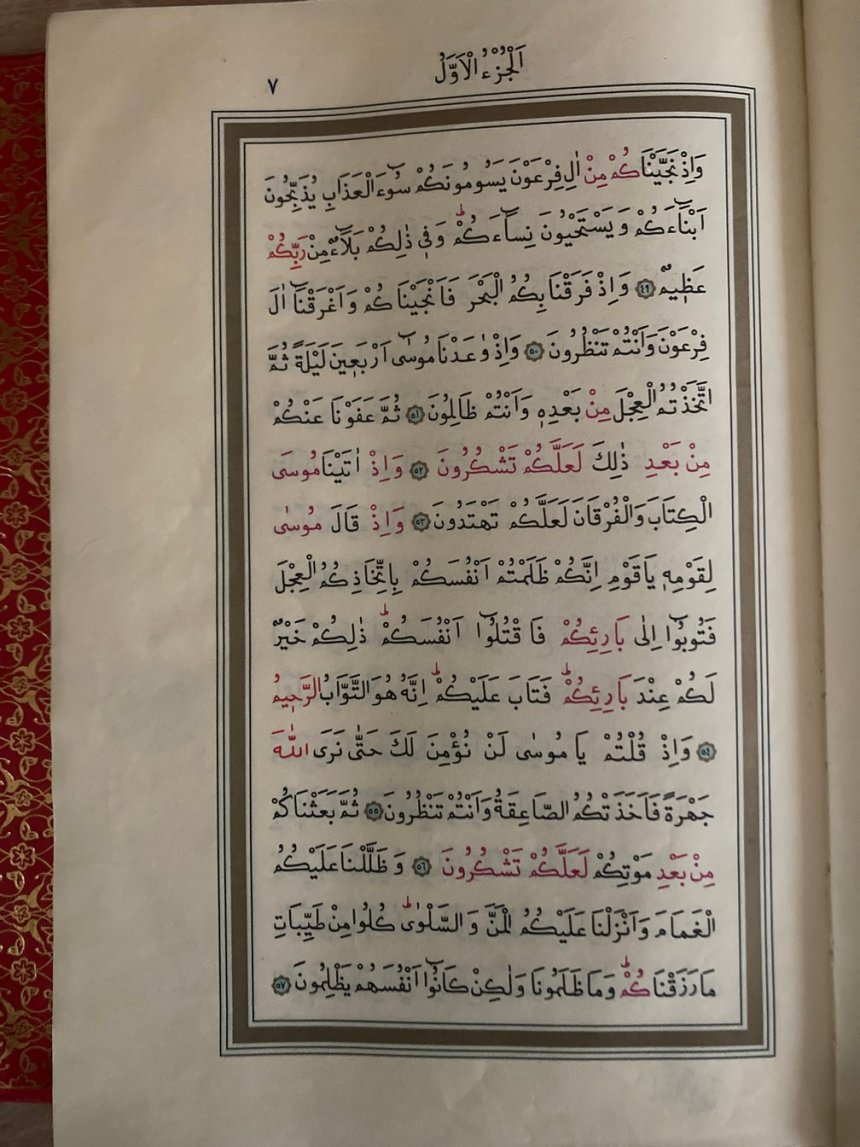 اَلْجُزْءُ الْاَوَّلُ
٧
وَاِذْ نَجَّيْنَاكُمْ مِنْ اٰلِ فِرْعَوْنَ يَسُومُونَكُمْ سُوٓءَ الْعَذَابِ يُذَبِّحُونَ
اَبْنَٓاءَكُمْ وَيَسْتَحْيُونَ نِسَٓاءَكُمْۜ وَفٖي ذٰلِكُمْ بَلَٓاءٌ مِنْ رَبِّكُمْ
عَظٖيمٌ ٤٩ وَاِذْ فَرَقْنَا بِكُمُ الْبَحْرَ فَاَنْجَيْنَاكُمْ وَاَغْرَقْنَٓا اٰلَ
فِرْعَوْنَ وَاَنْتُمْ تَنْظُرُونَ ٥٠ وَاِذْ وٰعَدْنَا مُوسٰٓى اَرْبَعٖينَ لَيْلَةً ثُمَّ
اتَّخَذْتُمُ الْعِجْلَ مِنْ بَعْدِهٖ وَاَنْتُمْ ظَالِمُونَ ٥١ ثُمَّ عَفَوْنَا عَنْكُمْ
مِنْ بَعْدِ ذٰلِكَ لَعَلَّكُمْ تَشْكُرُونَ ٥٢ وَاِذْ اٰتَيْنَا مُوسَى
الْكِتَابَ وَالْفُرْقَانَ لَعَلَّكُمْ تَهْتَدُونَ ٥٣ وَاِذْ قَالَ مُوسٰى
لِقَوْمِهٖ يَا قَوْمِ اِنَّكُمْ ظَلَمْتُمْ اَنْفُسَكُمْ بِاتِّخَاذِكُمُ الْعِجْلَ
فَتُوبُٓوا اِلٰى بَارِئِكُمْ فَاقْتُلُٓوا اَنْفُسَكُمْۜ ذٰلِكُمْ خَيْرٌ
لَكُمْ عِنْدَ بَارِئِكُمْۜ فَتَابَ عَلَيْكُمْۜ اِنَّهُ هُوَ التَّوَّابُ الرَّحٖيمُ
٥٤ وَاِذْ قُلْتُمْ يَا مُوسٰى لَنْ نُؤْمِنَ لَكَ حَتّٰى نَرَى اللّٰهَ
جَهْرَةً فَاَخَذَتْكُمُ الصَّاعِقَةُ وَاَنْتُمْ تَنْظُرُونَ ٥٥ ثُمَّ بَعَثْنَاكُمْ
مِنْ بَعْدِ مَوْتِكُمْ لَعَلَّكُمْ تَشْكُرُونَ ٥٦ وَظَلَّلْنَا عَلَيْكُمُ
الْغَمَامَ وَاَنْزَلْنَا عَلَيْكُمُ الْمَنَّ وَالسَّلْوٰىۜ كُلُوا مِنْ طَيِّبَاتِ
مَا رَزَقْنَاكُمْۜ وَمَا ظَلَمُونَا وَلٰكِنْ كَانُٓوا اَنْفُسَهُمْ يَظْلِمُونَ ٥٧